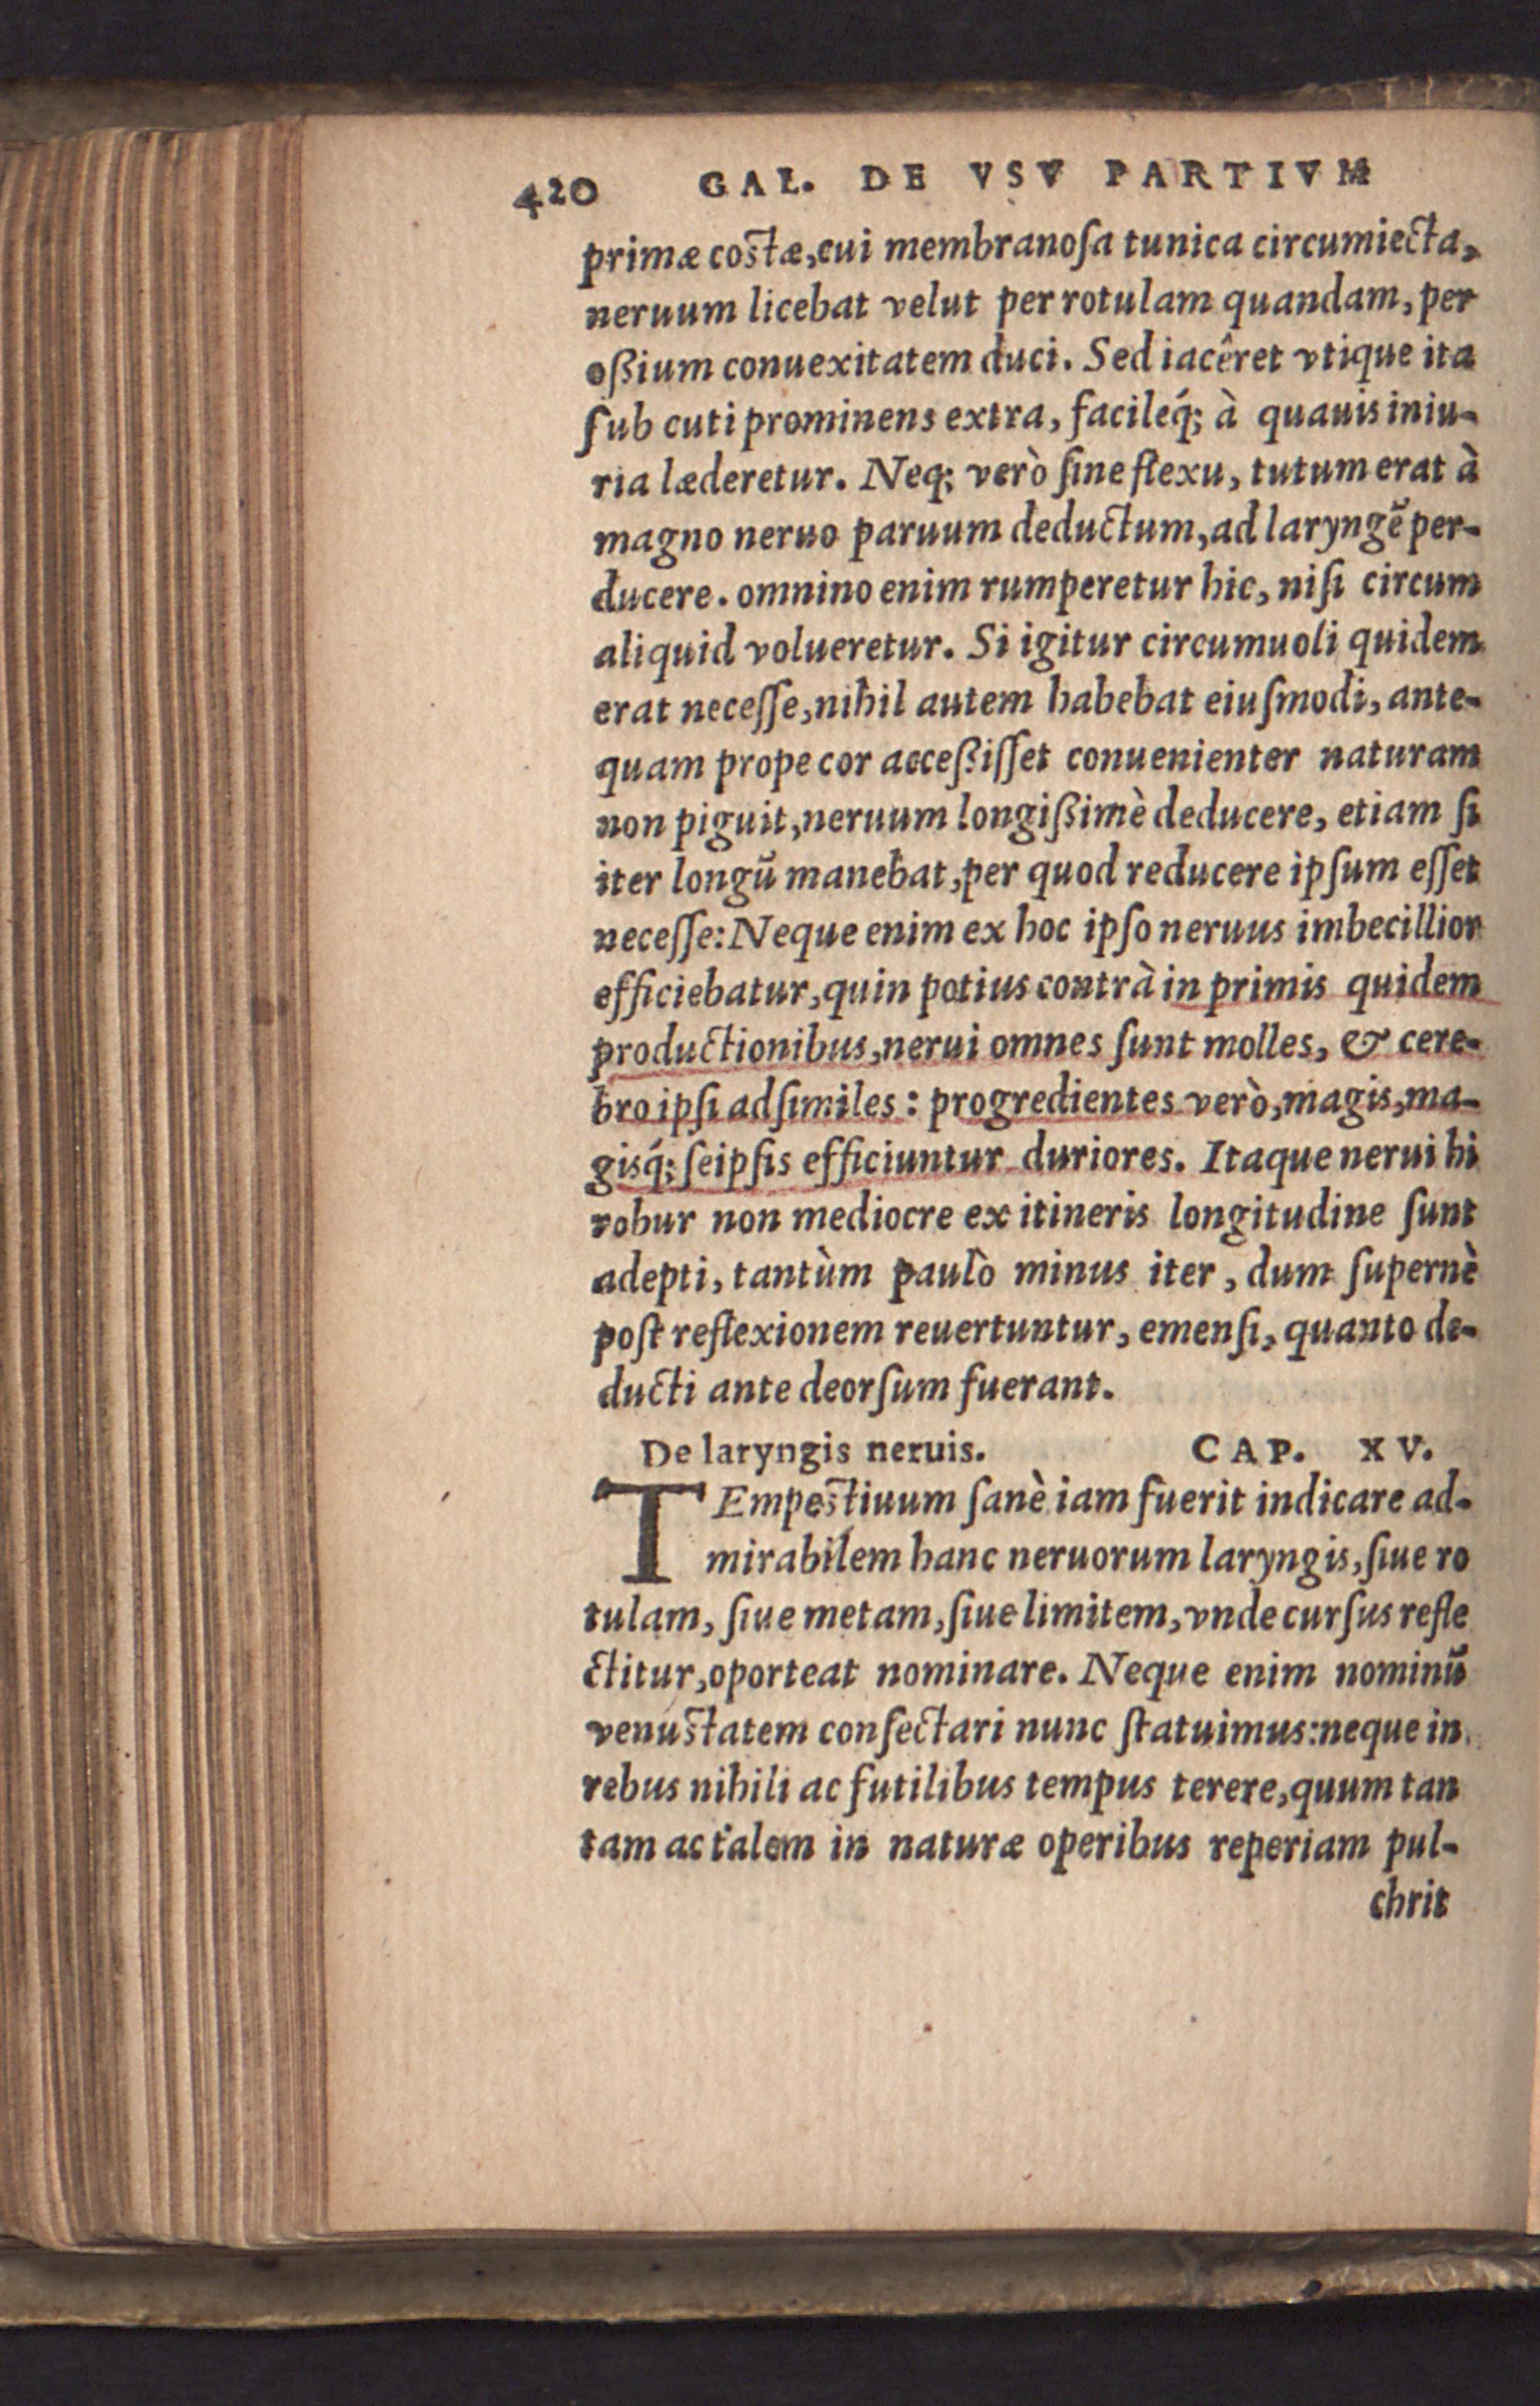 420 GAL. DE VSV PARTIVM
primæ costæ,cui membranoſa tunica circumiecta,
neruum licebat velut per rotulam quandam, per
oßium conuexitatem duci. Sed iacêret vtique ita
ſub cuti prominens extra, facileq́; à quauis iniu-
ria læderetur. Neq; verò ſine flexu, tutum erat à
magno neruo paruum deductum,ad laryngẽ per-
ducere. omnino enim rumperetur hic, niſi circum
aliquid volueretur. Si igitur circumuoli quidem
erat neceſſe,nihil autem habebat eiuſmodi, ante-
quam prope cor acceßiſſet conuenienter naturam
non piguit,neruum longißimè deducere, etiam ſi
iter longũ manebat,per quod reducere ipſum eſſet
neceſſe:Neque enim ex hoc ipſo neruus imbecillior
efficiebatur,quin potius contrà in primis quidem
productionibus,nerui omnes ſunt molles, & cere-
bro ipſi adſimiles: progredientes verò,magis,ma-
gisq́; ſeipſis efficiuntur duriores. Itaque nerui hi
robur non mediocre ex itineris longitudine ſunt
adepti, tantùm paulò minus iter, dum ſupernè
poſt reflexionem reuertuntur, emenſi, quanto de-
ducti ante deorſum fuerant.
De laryngis neruis. CAP. XV.
TEmpestiuum ſanè iam fuerit indicare ad-
mirabilem hanc neruorum laryngis,ſiue ro
tulam, ſiue metam,ſiue limitem,vnde curſus refle
ctitur,oporteat nominare. Neque enim nominũ
venustatem conſectari nunc ſtatuimus:neque in
rebus nihili ac futilibus tempus terere,quum tan
tam ac talem in naturæ operibus reperiam pul-
chrit